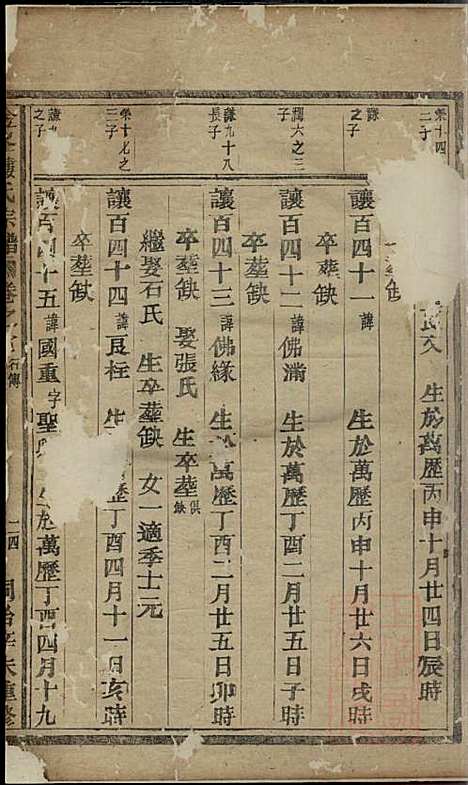 榮十四
二子
文 生於萬歷丙申十月廿四日辰時
卒塟缺
謙
之子
讓百四十一 諱 生於萬歷丙申十月廿六日戌時
卒塟缺
六之三
子
讓百四十二 諱佛滿 生於萬歷丁酉二月廿五日子時
卒塟缺
謙九十八
長子
讓百四十三 諱佛緣 生於萬歷丁酉二月廿五日卯時
卒塟缺 娶張氏 生卒塟俱缺
繼娶石氏 生卒塟缺 女一適季士元
榮十七之
三子
讓百四十四 諱良枉 生 歷丁酉四月十一日亥時
卒塟缺
謙
之子
讓百四十五 諱國重字聖 生於萬歷丁酉四月十九
氏宗譜 卷 石傳 二四 同治辛未重修